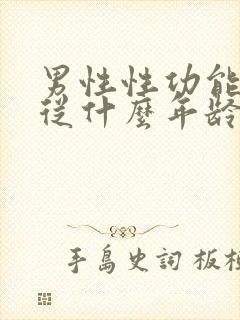 男性性功能
從什麼年齡
手島史詞 板